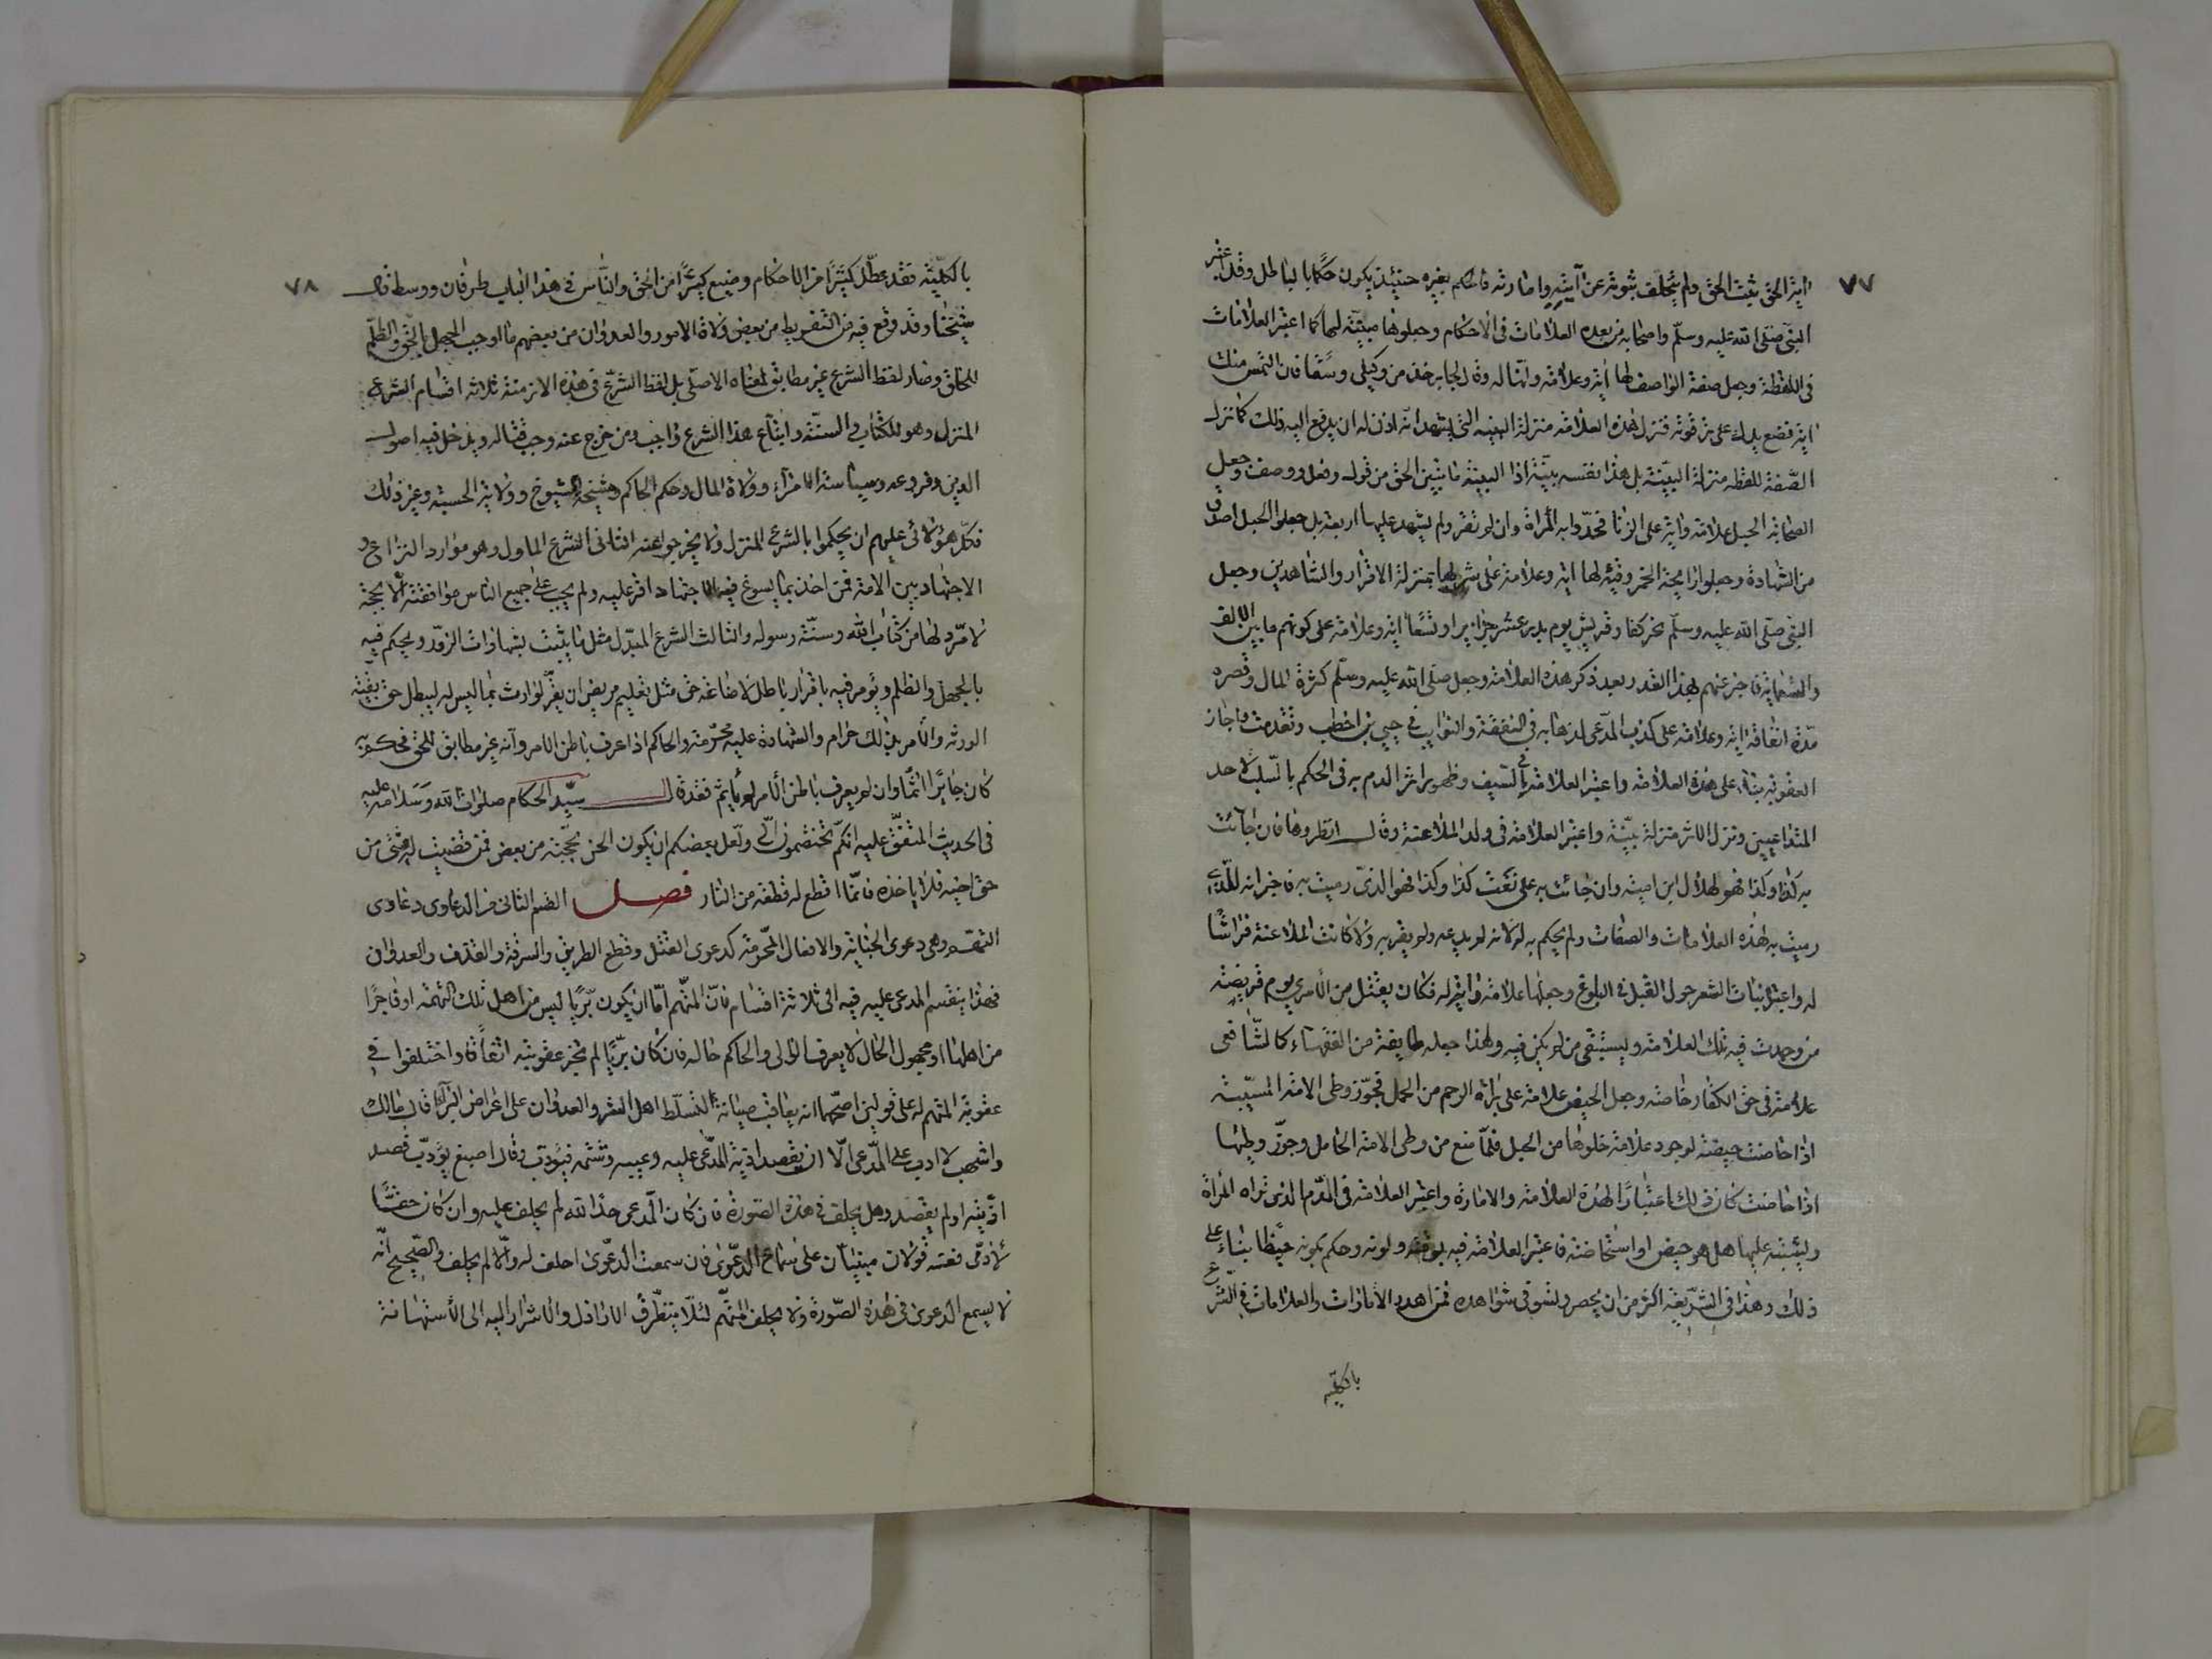 ٧٧
اية الحق ثبت الحق ولم يتخلف ثبوته عن آيته وامارته فالحكم بغيره حينئذ يكون حكما بالباطل وقد اعتبر
النبي صلى الله عليه وسلم واصحابه من بعده العلامات في الاحكام وجعلوها مبينة لها كما اعتبر العلامات
في اللقطة وجعل صفة الواصف لها آية وعلامة وانها له وقال لجابر خذ من وكيلي وسقا فان التمس منك
اية فضع يدك على ترقوته فنزل هذه العلامة منزلة البينة التي يشهد انه اذن له ان يدفع اليه ذلك كما نزل
الصفة للقطة منزلة البينة بل هذا نفسه بينة اذا البينة ما يبين الحق من قول وفعل ووصف وجعل
الصحابة الحبل علامة واية على الزنا فحدوا به المرأة وان لم تقر ولم يشهد عليها اربعة بل جعلوا الحبل اصدق
من الشهادة وجعلوا رايحة الخمر وقيئه لها اية وعلامة على شربها بمنزلة الاقرار والشاهدين وجعل
النبي صلى الله عليه وسلم نحر كفار قريش يوم بدر عشر جزاير او تسعا اية وعلامة على كونهم ما بين الالف
والتسعماية فاخبر عنهم بهذا القدر بعد ذكر هذه العلامة وجعل صلى الله عليه وسلم كثرة المال وقصر
مدة انفاقه اية وعلامة على كذب المدعي لذهابه في النفقة والنوايب في حيي بن اخطب وتقدمت واجاز
العقوبة بناء على هذه العلامة واعتبر العلامة في السيف وظهور اثر الدم به في الحكم بالسلب لاحد
المتداعيين ونزل الاثر منزلة بينة واعتبر العلامة في ولد الملاعنة وقال انظروها فان جائت
به كذا وكذا فهو لهلال ابن امية وان جائت به على نعت كذا وكذا فهو الذي رميت به فاخبر انه للذي
رميت به لهذه العلامات والصفات ولم يحكم به له لانه لم يدعه ولم يقر به ولا كانت الملاعنة فراشا
له واعتبر نبات الشعر حول القبل في البلوغ وجعلها علامة واية له فكان يقتل من الاسرى يوم قريضة
من وجدت فيه تلك العلامة ويستبقى من لم يكن فيه ولهذا جعله طايفة من الفقهاء كالشافعي
علامة في حق الكفار خاصة وجعل الحيض علامة على براة الرحم من الحمل فجوز وطى الامة المسبية
اذا حاضت حيضة لوجود علامة خلوها من الحبل فلما منع من وطى الامة الحامل وجوز وطيها
اذا حاضت كان ذلك اعتبارا لهذه العلامة والامارة واعتبر العلامة في الدم الذي تراه المرأة
ويشتبه عليها هل هو حيض او استحاضة فاعتبر العلامة فيه بوقته ولونه وحكم بكونه حيضا بناء على
ذلك وهذا في الشريعة اكثر من ان يحصر ويستوفي شواهده فمن اهدر الامارات والعلامات في الشرع
بالكلية
٧٨
بالكلية فقد عطل كثيرا من الاحكام وضيع كثيرا من الحق والناس في هذا الباب طرفان ووسط قال
شيخنا وقد وقع فيه من التفريط من بعض ولاة الامور والعدوان من بعضهم ما اوجب الجهل بالحق والظلم
للخلق وصار لفظ الشرع غير مطابق لمعناه الاصلي بل لفظ الشرع في هذه الازمنة ثلاثة اقسام الشرع
المنزل وهو الكتاب والسنة واتباع هذا الشرع واجب ومن خرج عنه وجب قتاله ويدخل فيه اصول
الدين وفروعه وسياسة الامراء وولاة المال وحكم الحاكم ومشيخة الشيوخ وولاية الحسبة وغير ذلك
فكل هؤلائي عليهم ان يحكموا بالشرع المنزل ولا يخرجوا عنه الثاني الشرع الماول وهو موارد النزاع و
الاجتهاد بين الامة فمن اخذ بما يسوغ فيه الاجتهاد اقر عليه ولم يجب على جميع الناس موافقته الا بحجة
لا مرد لها من كتاب الله وسنة رسوله والثالث الشرع المبدل مثل ما يثبت بشهادات الزور ويحكم فيه
بالجهل والظلم ويؤمر فيه باقرار باطل لاضاعة حق مثل تعليم مريض ان يقر لوارث بما ليس له ليبطل حق بقية
الورثة والامر بذلك حرام والشهادة عليه محرمة والحاكم اذا عرف باطن الامر وانه غير مطابق للحق فحكم به
كان جايرا اثما وان لم يعرف باطن الامر لم ياثم فقد قال سيد الحكام صلوات الله وسلامه عليه
في الحديث المتفق عليه انكم تختصمون الي ولعل بعضكم ان يكون الحن بحجته من بعض فمن قضيت له بشئ من
حق اخيه فلا ياخذه فانما اقطع له قطعة من النار فصل القسم الثاني من الدعاوى دعاوى
التهمة وهي دعوى الجناية والافعال المحرمة كدعوى القتل وقطع الطريق والسرقة والقذف والعدوان
فهذا ينقسم المدعى عليه فيه الى ثلاثة اقسام فان المتهم اما ان يكون بريا ليس من اهل تلك التهمة او فاجرا
من اهلها او مجهول الحال لا يعرف الوالي والحاكم حاله فان كان بريا لم تجز عقوبته اتفاقا واختلفوا في
عقوبة المتهم له على قولين اصحهما انه يعاقب صيانة لتسلط اهل الشر والعدوان على اعراض البرآء قال مالك
واشهب لا ادب على المدعي الا ان يقصد اذية المدعى عليه وعيبه وشتمه فيؤدب وقال اصبغ يؤدب قصد
اذيته او لم يقصد وهل يحلف في هذه الصورة فان كان المدعى حدا لله لم يحلف عليه وان كان حقا
لادمى ففيه قولان مبنيان على سماع الدعوى فان سمعت الدعوى احلف له والا لم يحلف والصحيح انه
لا يسمع الدعوى في هذه الصورة ولا يحلف المتهم لئلا يتطرق الاراذل والاشرار اليه الى الاستهانة